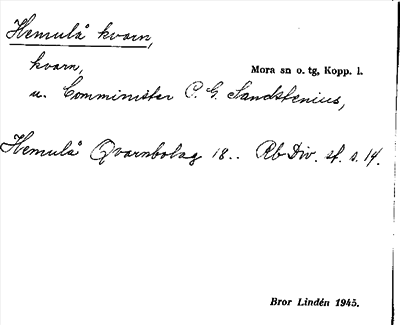 Hemulå kvarn,
kvarn, Mora sn o. tg, Kopp. l.
u. Comminister C. G. Sandstenius,
Hemulå Qvarnbolag 18.. Rb Div. sf. s. 14.
Bror Lindén 1945.